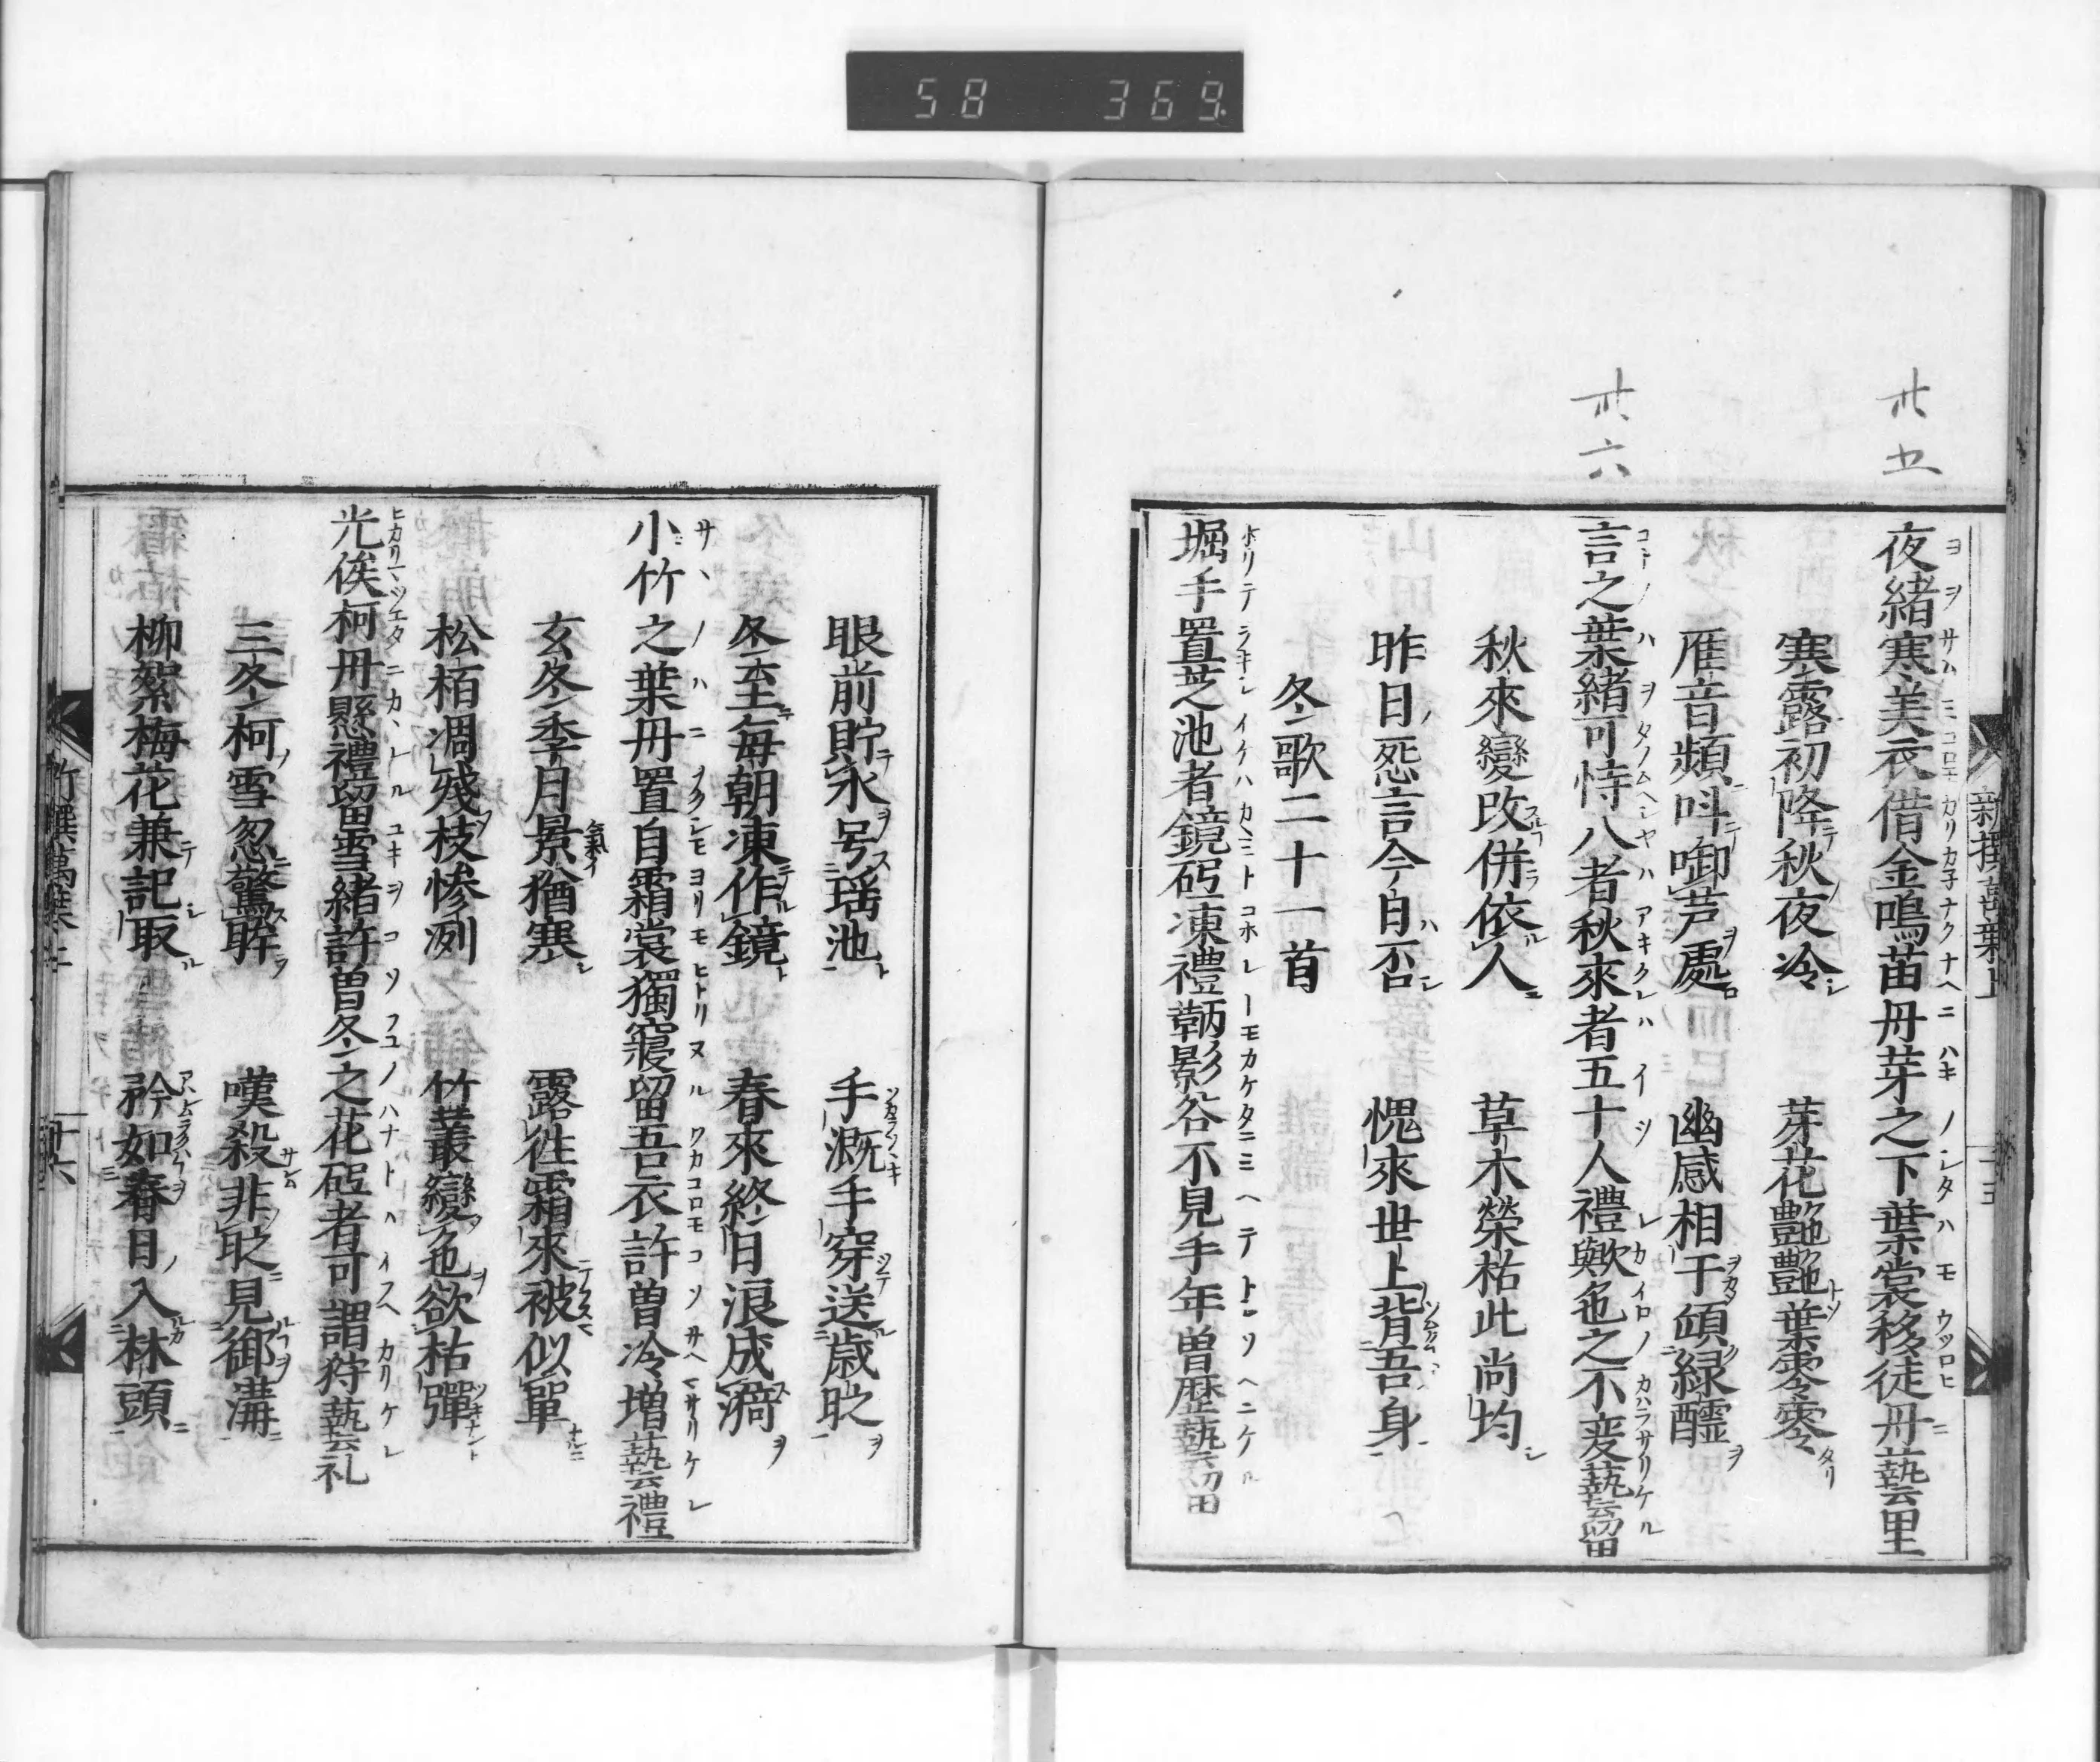 58 369.
廿五
夜緒寒美衣借金鳴苗丹芽之下葉裳移徒丹藝里
寒露初降秋夜冷 芽花艶艶葉零零
雁音頻呌啣芦處 幽感相干傾緑醽
廿六
言之葉緒可恃八者秋來者五十人禮歟色之不変藝留
秋來變改併依人 草木榮枯此尚均
昨日怨言今自否 愧來世上背吾身
冬歌二十一首
堀手置芝池者鏡砥凍禮鞆影谷不見手年曽歴藝留
眼前貯氷号瑶池 手溉手穿送歳眡
冬至毎朝凍作鏡 春來終日浪成漪
小竹之葉丹置自霜裳獨寢留吾衣許曽冷増藝禮
玄冬季月景猶寒 露往霜來被似單
松栢凋殘枝惨冽 竹叢變色欲枯彈
光俟柯丹懸禮留雪緒許曽冬之花砥者可謂狩藝礼
三冬柯雪忽驚眸 嘆殺非眡見御溝
柳絮梅花兼記取 矜如春日入林頭